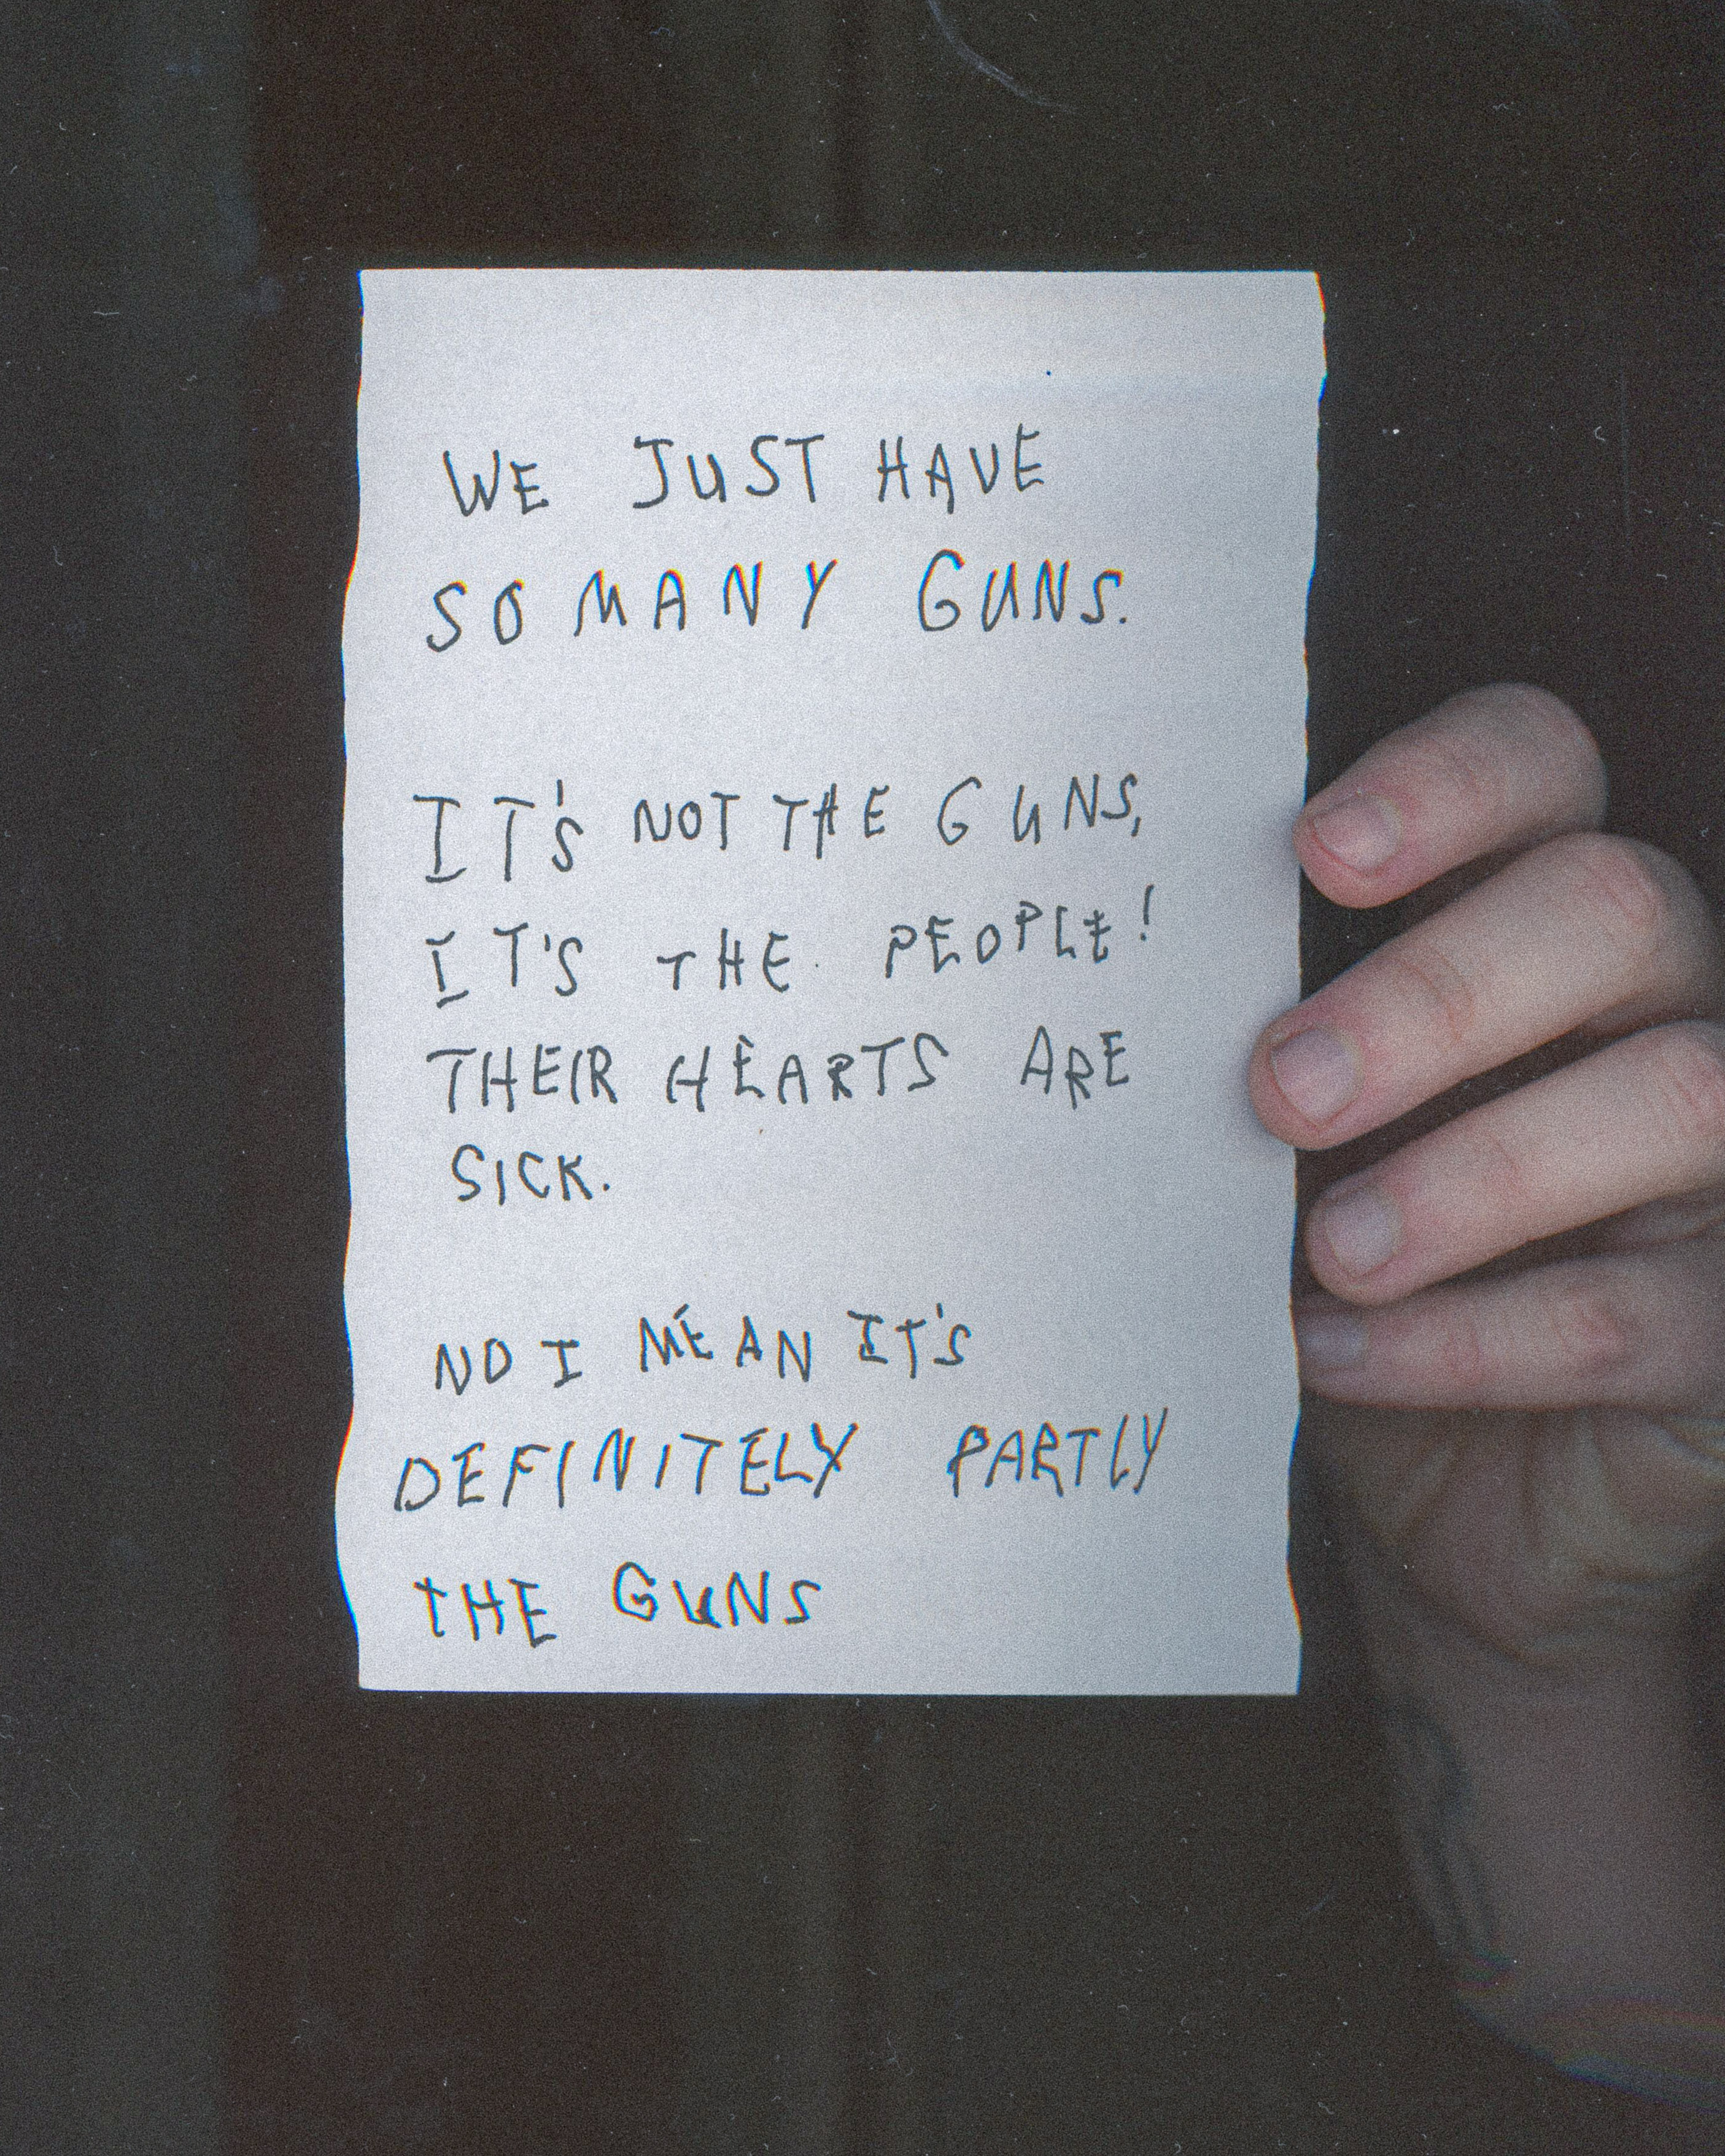 WE JUST HAVE
SO MANY GUNS.
IT'S NOT THE GUNS,
IT'S THE PEOPLE!
THEIR HEARTS ARE
SICK.
NO I MEAN IT'S
DEFINITELY PARTLY
THE GUNS